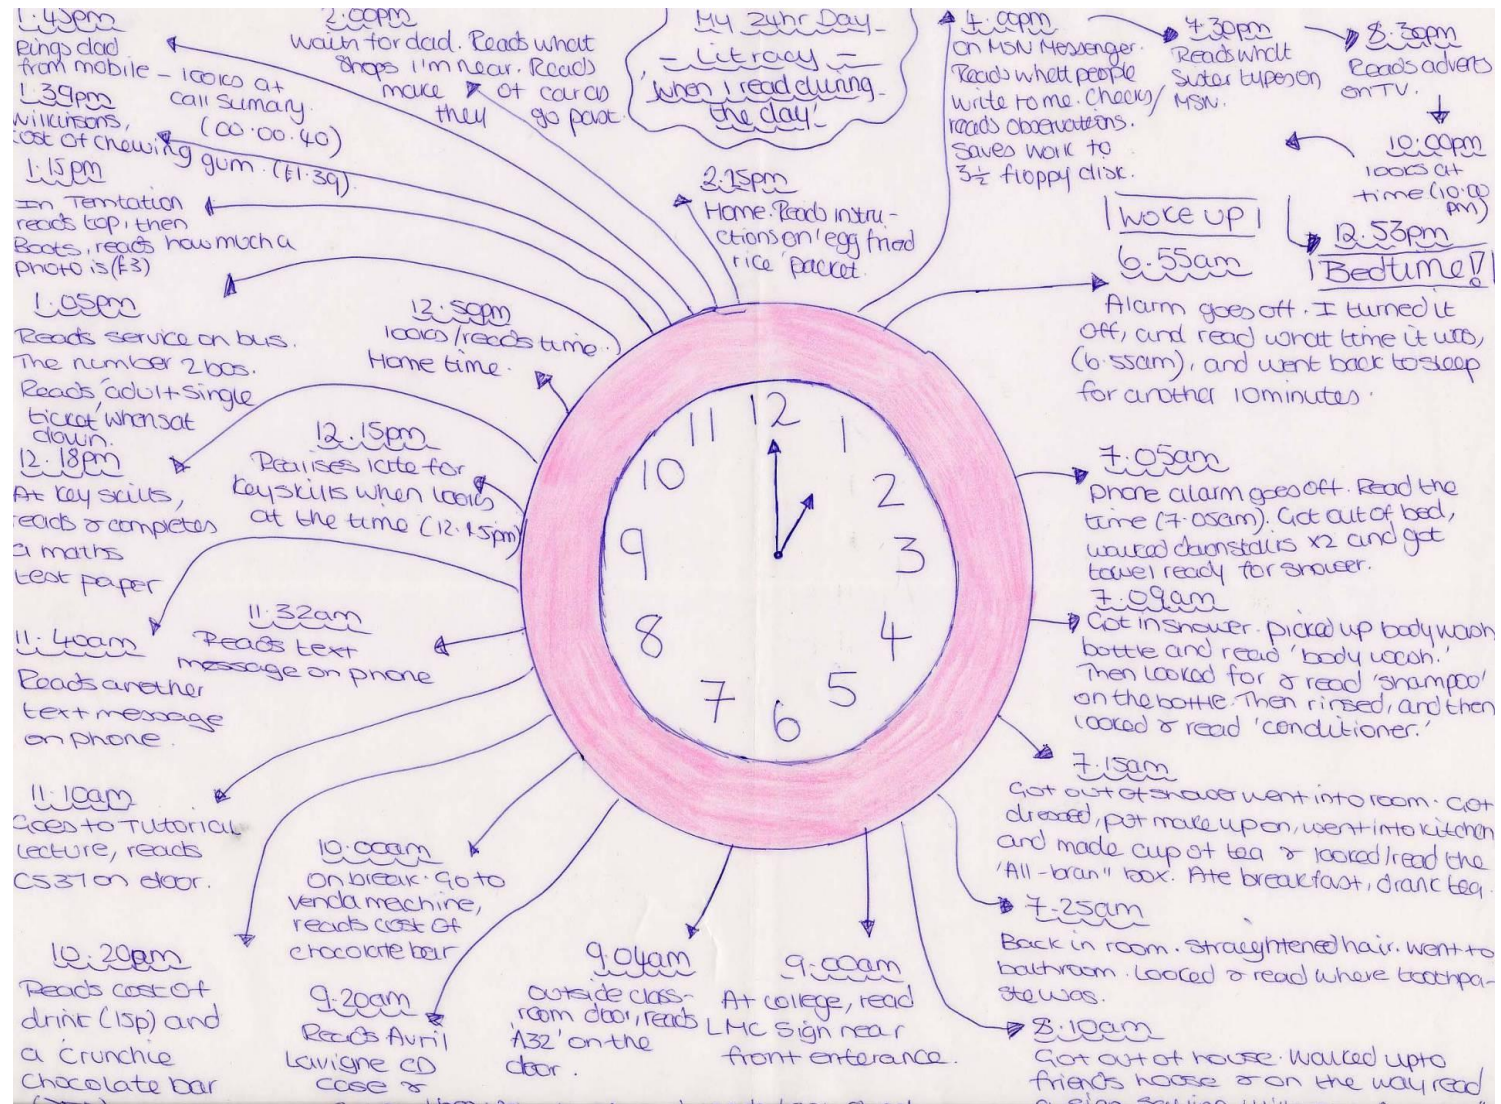 My 24hr Day -
- Litracy -
'when I read during
the day'
|WOKE UP|
6.55am
Alarm goes off. I turned it
off, and read what time it was,
(6.55am), and went back to sleep
for another 10minutes.
7.05am
phone alarm goes off. Read the
time (7.05am). Got out of bed,
walked downstairs x2 and got
towel ready for shower.
7.09am
Got in shower. picked up body wash
bottle and read 'body wash.'
Then looked for & read 'shampoo'
on the bottle. Then rinsed, and then
looked & read 'conditioner.'
7.15am
Got out of shower went into room. Got
dressed, put make up on, went into kitchen
and made cup of tea & looked/read the
"All-bran" box. Ate breakfast, drank tea.
7.25am
Back in room. straightened hair. went to
bathroom. Looked & read where toothpa-
ste was.
8.10am
Got out of house. Walked upto
friends house & on the way read
a sign saying
9.00am
At college, read
LMC sign near
front enterance.
9.04am
outside class-
room door, reads
'A32' on the
door.
9.20am
Reads Avril
Lavigne CD
case &
10.00am
on break. Go to
venda machine,
reads cost of
chocolate bar
10.20am
Reads cost of
drink (15p) and
a Crunchie
chocolate bar
11.10am
Goes to Tutorial
Lecture, reads
CS37 on door.
11.32am
Reads text
message on phone
11.40am
Reads another
text message
on phone.
12.15pm
Realises late for
keyskills when looks
at the time (12.15pm)
12.18pm
At key skills,
reads & completes
a maths
test paper
12.50pm
looks/reads time.
Home time.
1.05pm
Reads service on bus.
The number 2 bus.
Reads 'adult single
ticket' when sat
down.
1.15pm
In Temtation
reads top, then
Boots, reads how much a
photo is (£3)
1.39pm
Wilkinsons,
cost of chewing gum. (£1.39).
1.45pm
Rings dad
from mobile - looks at
call sumary.
(00.00.40)
2.00pm
waitn for dad. Reads what
shops I'm near. Reads
make of cards
they go past.
2.15pm
Home. Reads instru-
ctions on 'egg fried
rice' packet.
7.00pm
on MSN Messenger.
Reads whatt people
write to me. Checks/
reads observations.
Saves work to
3½ floppy disk.
7.30pm
Reads what
sister types on
MSN.
8.30pm
Reads adverts
on TV.
10.00pm
looks at
time (10.00
pm)
12.53pm
|Bedtime!|
12
1
2
3
4
5
6
7
8
9
10
11